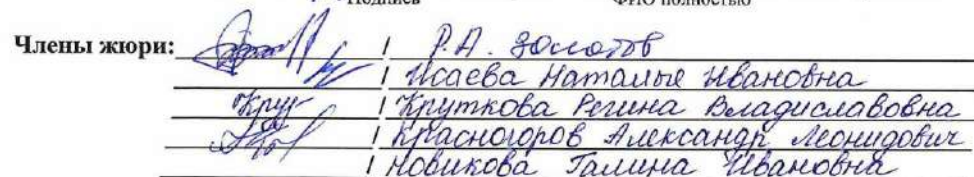 Подпись ФИО полностью
Члены жюри: / Р.А. Золотов
/ Исаева Наталья Ивановна
/ Круткова Регина Владиславовна
/ Красногоров Александр Леонидович
/ Новикова Галина Ивановна